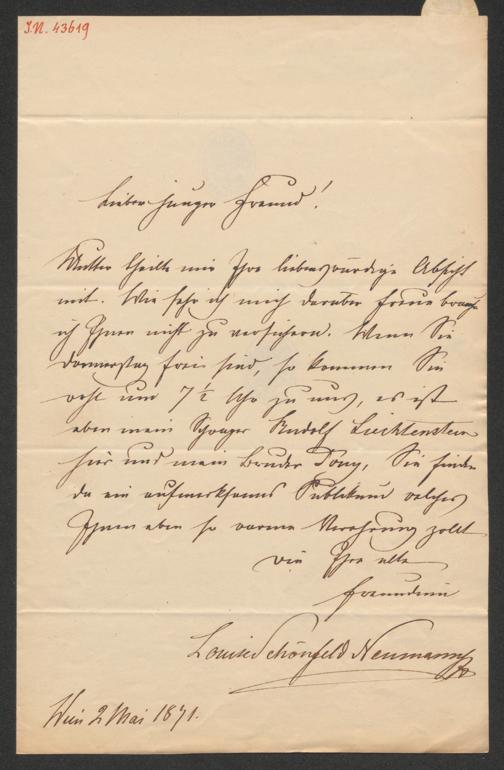 I.N. 43619
Lieber junger Freund!
Mutter theilte mir Ihre liebenswürdige Absicht
mit. Wie sehr ich mich darüber freue brauche
ich Ihnen nicht zu versichern. Wenn Sie
Donnerstag frei sind, so kommen Sie
wohl um 7 ½ Uhr zu uns, es ist
eben mein Schwager Rudolf Liechtenstein
hier und mein Bruder Tony, Sie finden
da ein aufmerksames Publikum welches
Ihnen eben so warme Verehrung zollt
wie Ihre alte
Freundin
Louise Schönfeld Neumann
Wien 2 Mai 1871.